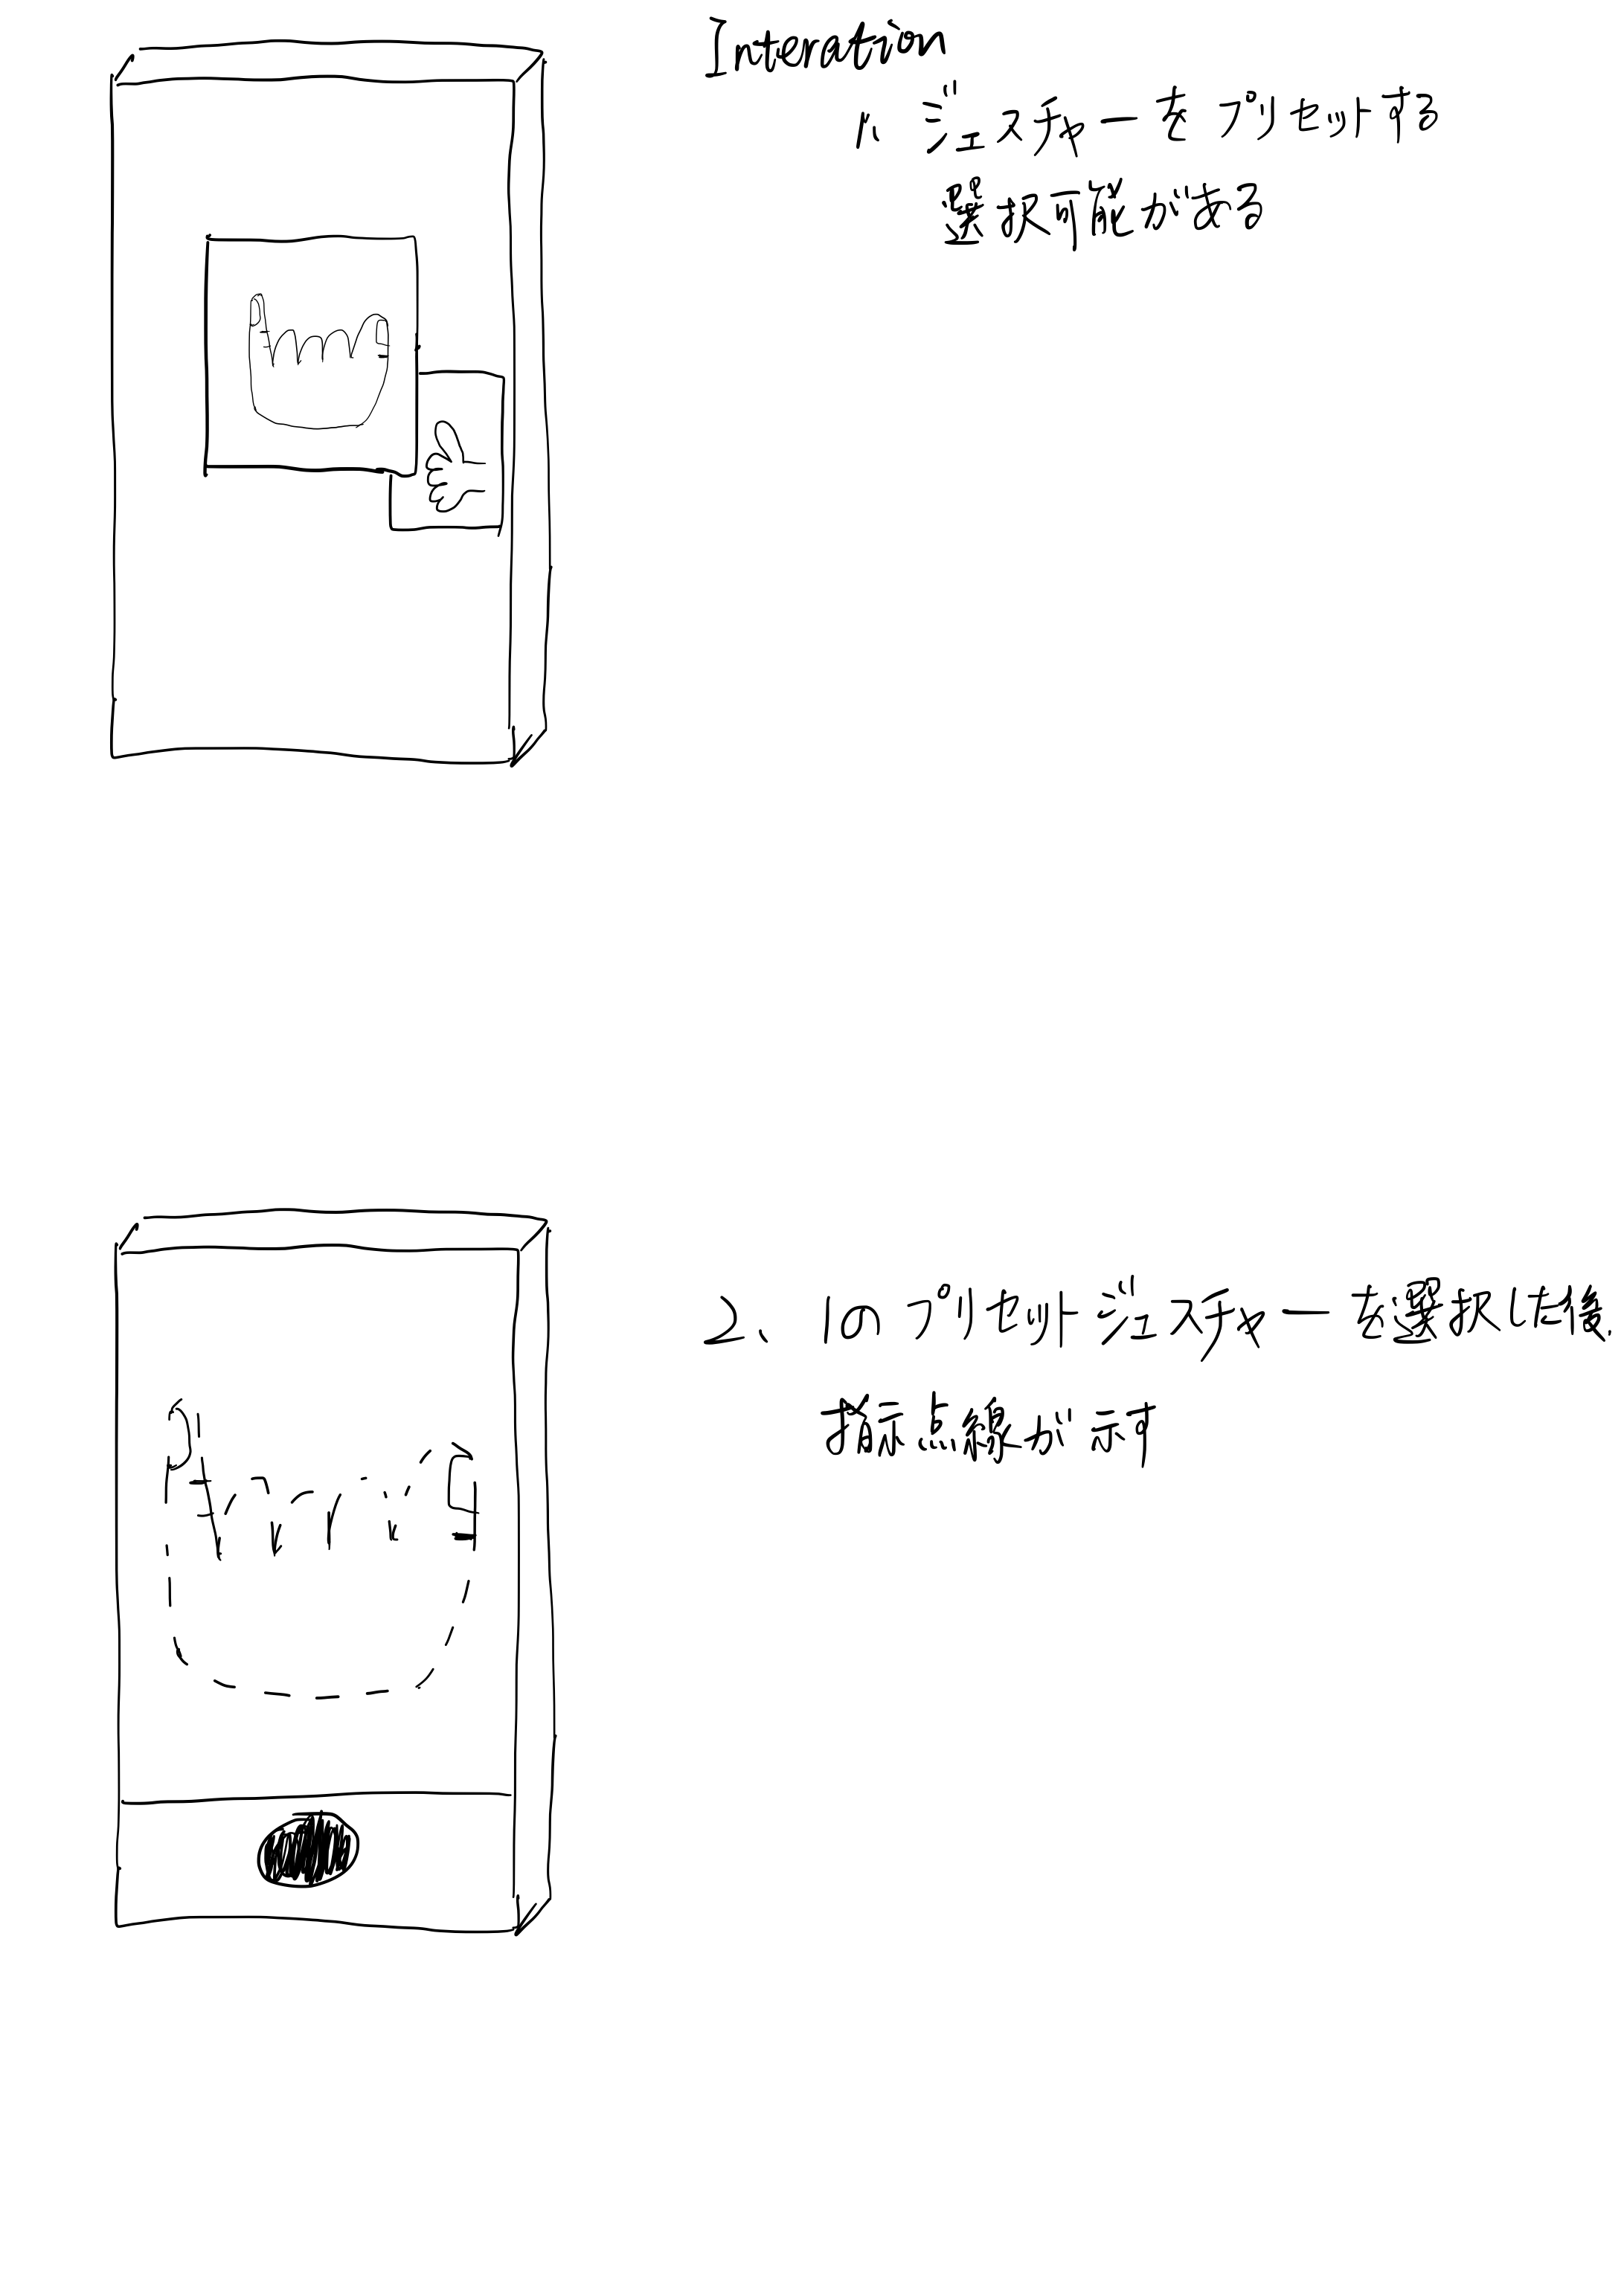 Interation
1、ジェスチャーをプリセットする
選択可能がある
2、1のプリセットジェスチャーを選択した後、
指示点線が示す